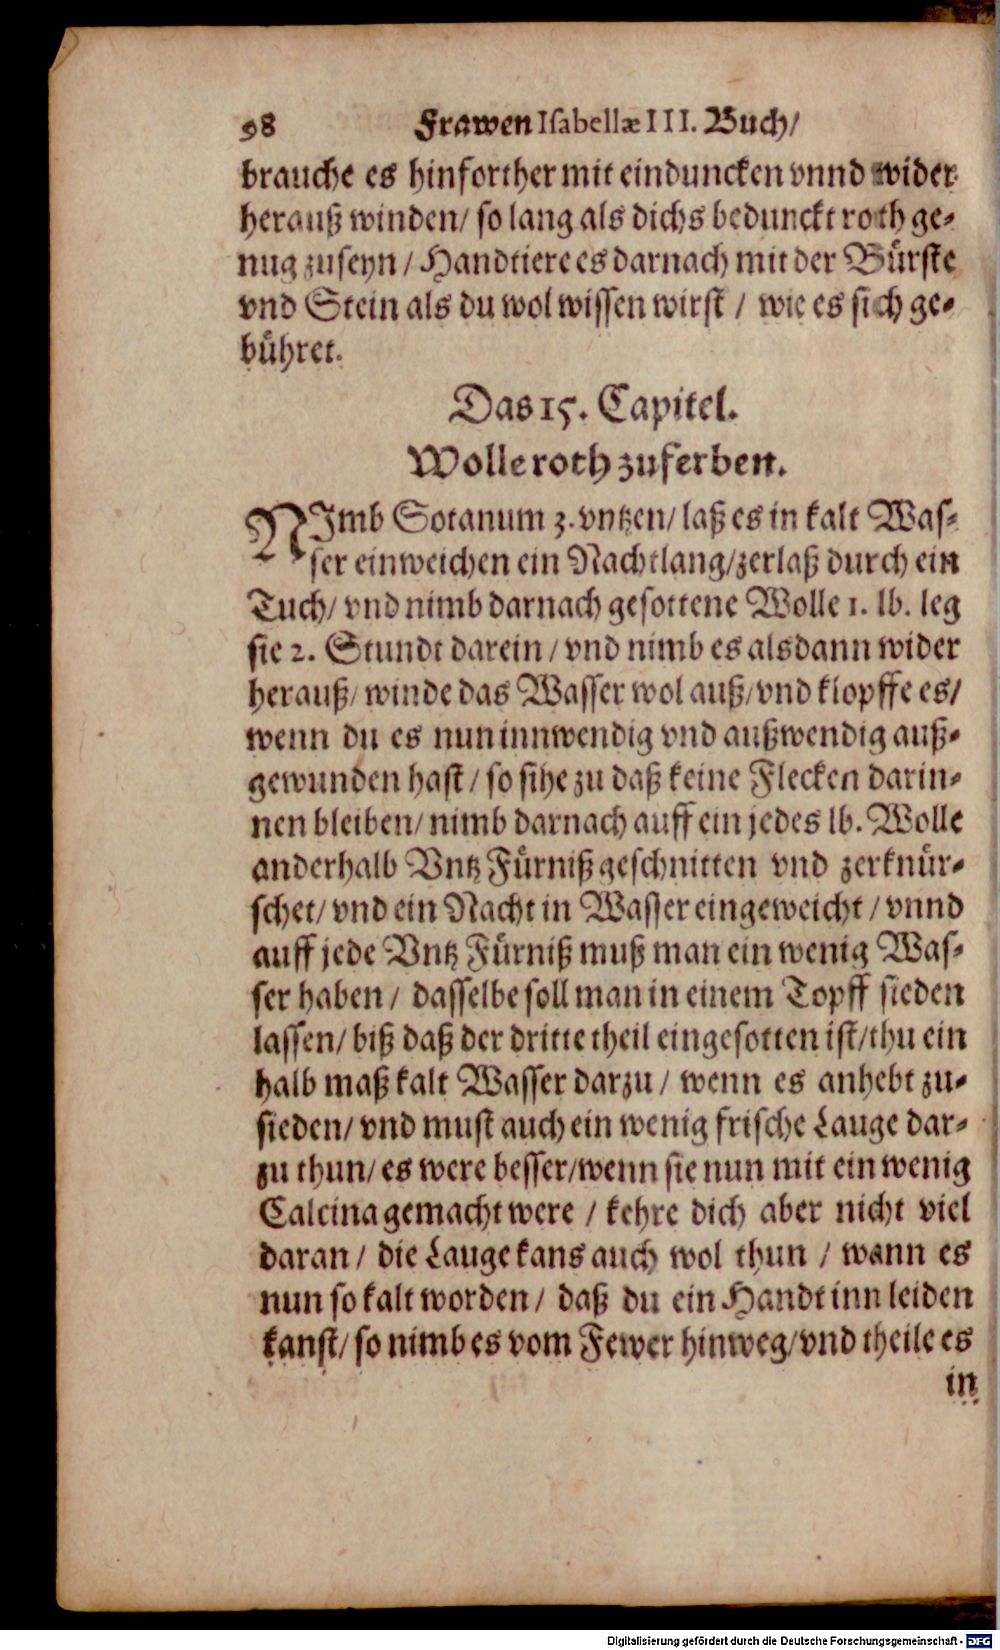 98 Frawen Isabellæ III. Buch/
brauche es hinforther mit einduncken vnnd wider
herauß winden/ so lang als dichs bedunckt roth ge-
nug zuseyn / Handtiere es darnach mit der Bürste
vnd Stein als du wol wissen wirst / wie es sich ge-
bühret.
Das 15. Capitel.
Wolle roth zuferben.
NImb Sotanum 3. vntzen/ laß es in kalt Was-
ser einweichen ein Nachtlang/zerlaß durch ein
Tuch/ vnd nimb darnach gesottene Wolle 1. lb. leg
sie 2. Stundt darein / vnd nimb es alsdann wider
herauß/ winde das Wasser wol auß/ vnd klopffe es/
wenn du es nun innwendig vnd außwendig auß-
gewunden hast / so sihe zu daß keine Flecken darin-
nen bleiben/ nimb darnach auff ein jedes lb. Wolle
anderhalb Vntz Fürniß geschnitten vnd zerknür-
schet/ vnd ein Nacht in Wasser eingeweicht / vnnd
auff jede Vntz Fürniß muß man ein wenig Was-
ser haben / dasselbe soll man in einem Topff sieden
lassen/ biß daß der dritte theil eingesotten ist/thu ein
halb maß kalt Wasser darzu / wenn es anhebt zu-
sieden/ vnd must auch ein wenig frische Lauge dar-
zu thun/ es were besser/wenn sie nun mit ein wenig
Calcina gemacht were / kehre dich aber nicht viel
daran / die Lauge kans auch wol thun / wann es
nun so kalt worden / daß du ein Handt inn leiden
kanst/ so nimb es vom Fewer hinweg/vnd theile es
in
Digitalisierung gefördert durch die Deutsche Forschungsgemeinschaft - DFG